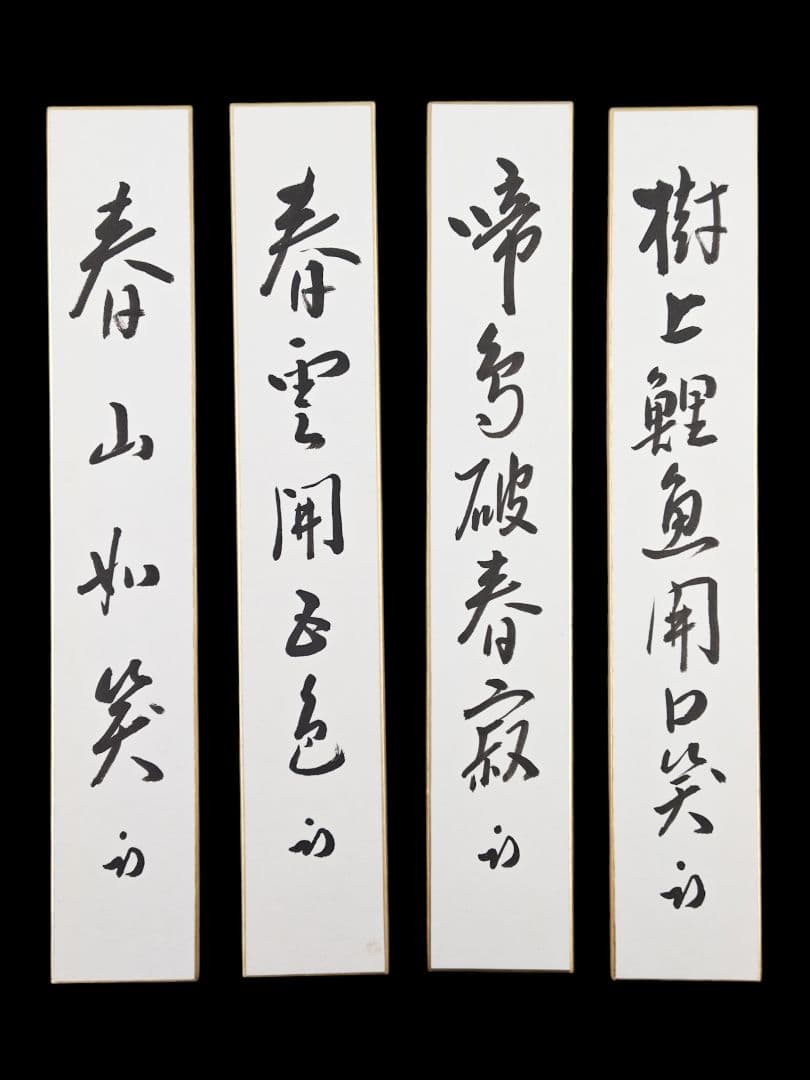 樹上鯉魚開口笑
啼鳥破春寂
春雲開五色
春山如笑